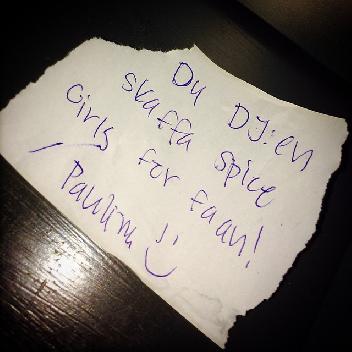 Du DJ:en
skaffa spice
Girls för faan!
Paulina